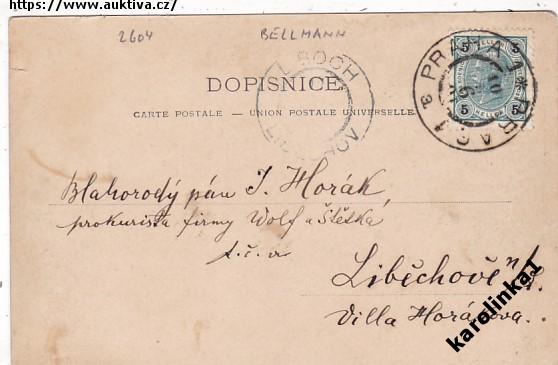 https://www.auktiva.cz/
2604 BELLMANN
DOPISNICE.
CARTE POSTALE — UNION POSTALE UNIVERSELLE
PRAHA 1 * PRAG 1
5 5
5 5
Blahorodý pán J. Horák,
prokurista firmy Wolf a Štěška
t. č. v
Liběchově n/L.
Villa Horákova.
karolinka1